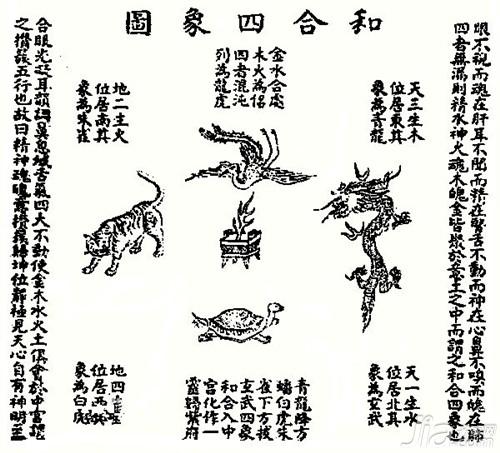 和合四象圖
眼不視而魂在肝耳不聞而精在腎舌不動而神在心鼻不嗅而魄在肺
四者無漏則精水神火魂木魄金皆聚於意土之中而謂之和合四象也
天三生木
位居東其
象為青龍
金水合處
木火為侶
四者混沌
列為龍虎
地二生火
位居南其
象為朱雀
天一生水
位居北其
象為玄武
青龍降方
蟠伯虎朱
雀下方披
玄武四象
和合入中
宮化作一
靈歸紫府
地四
位居西其
象為白虎
合眼光凝耳韻調鼻息緘舌氣四大不動使金木水火土俱會於中宮謂
之攢簇五行也故曰精神魂魄意攢簇歸坤位靜極見天心自有神明至